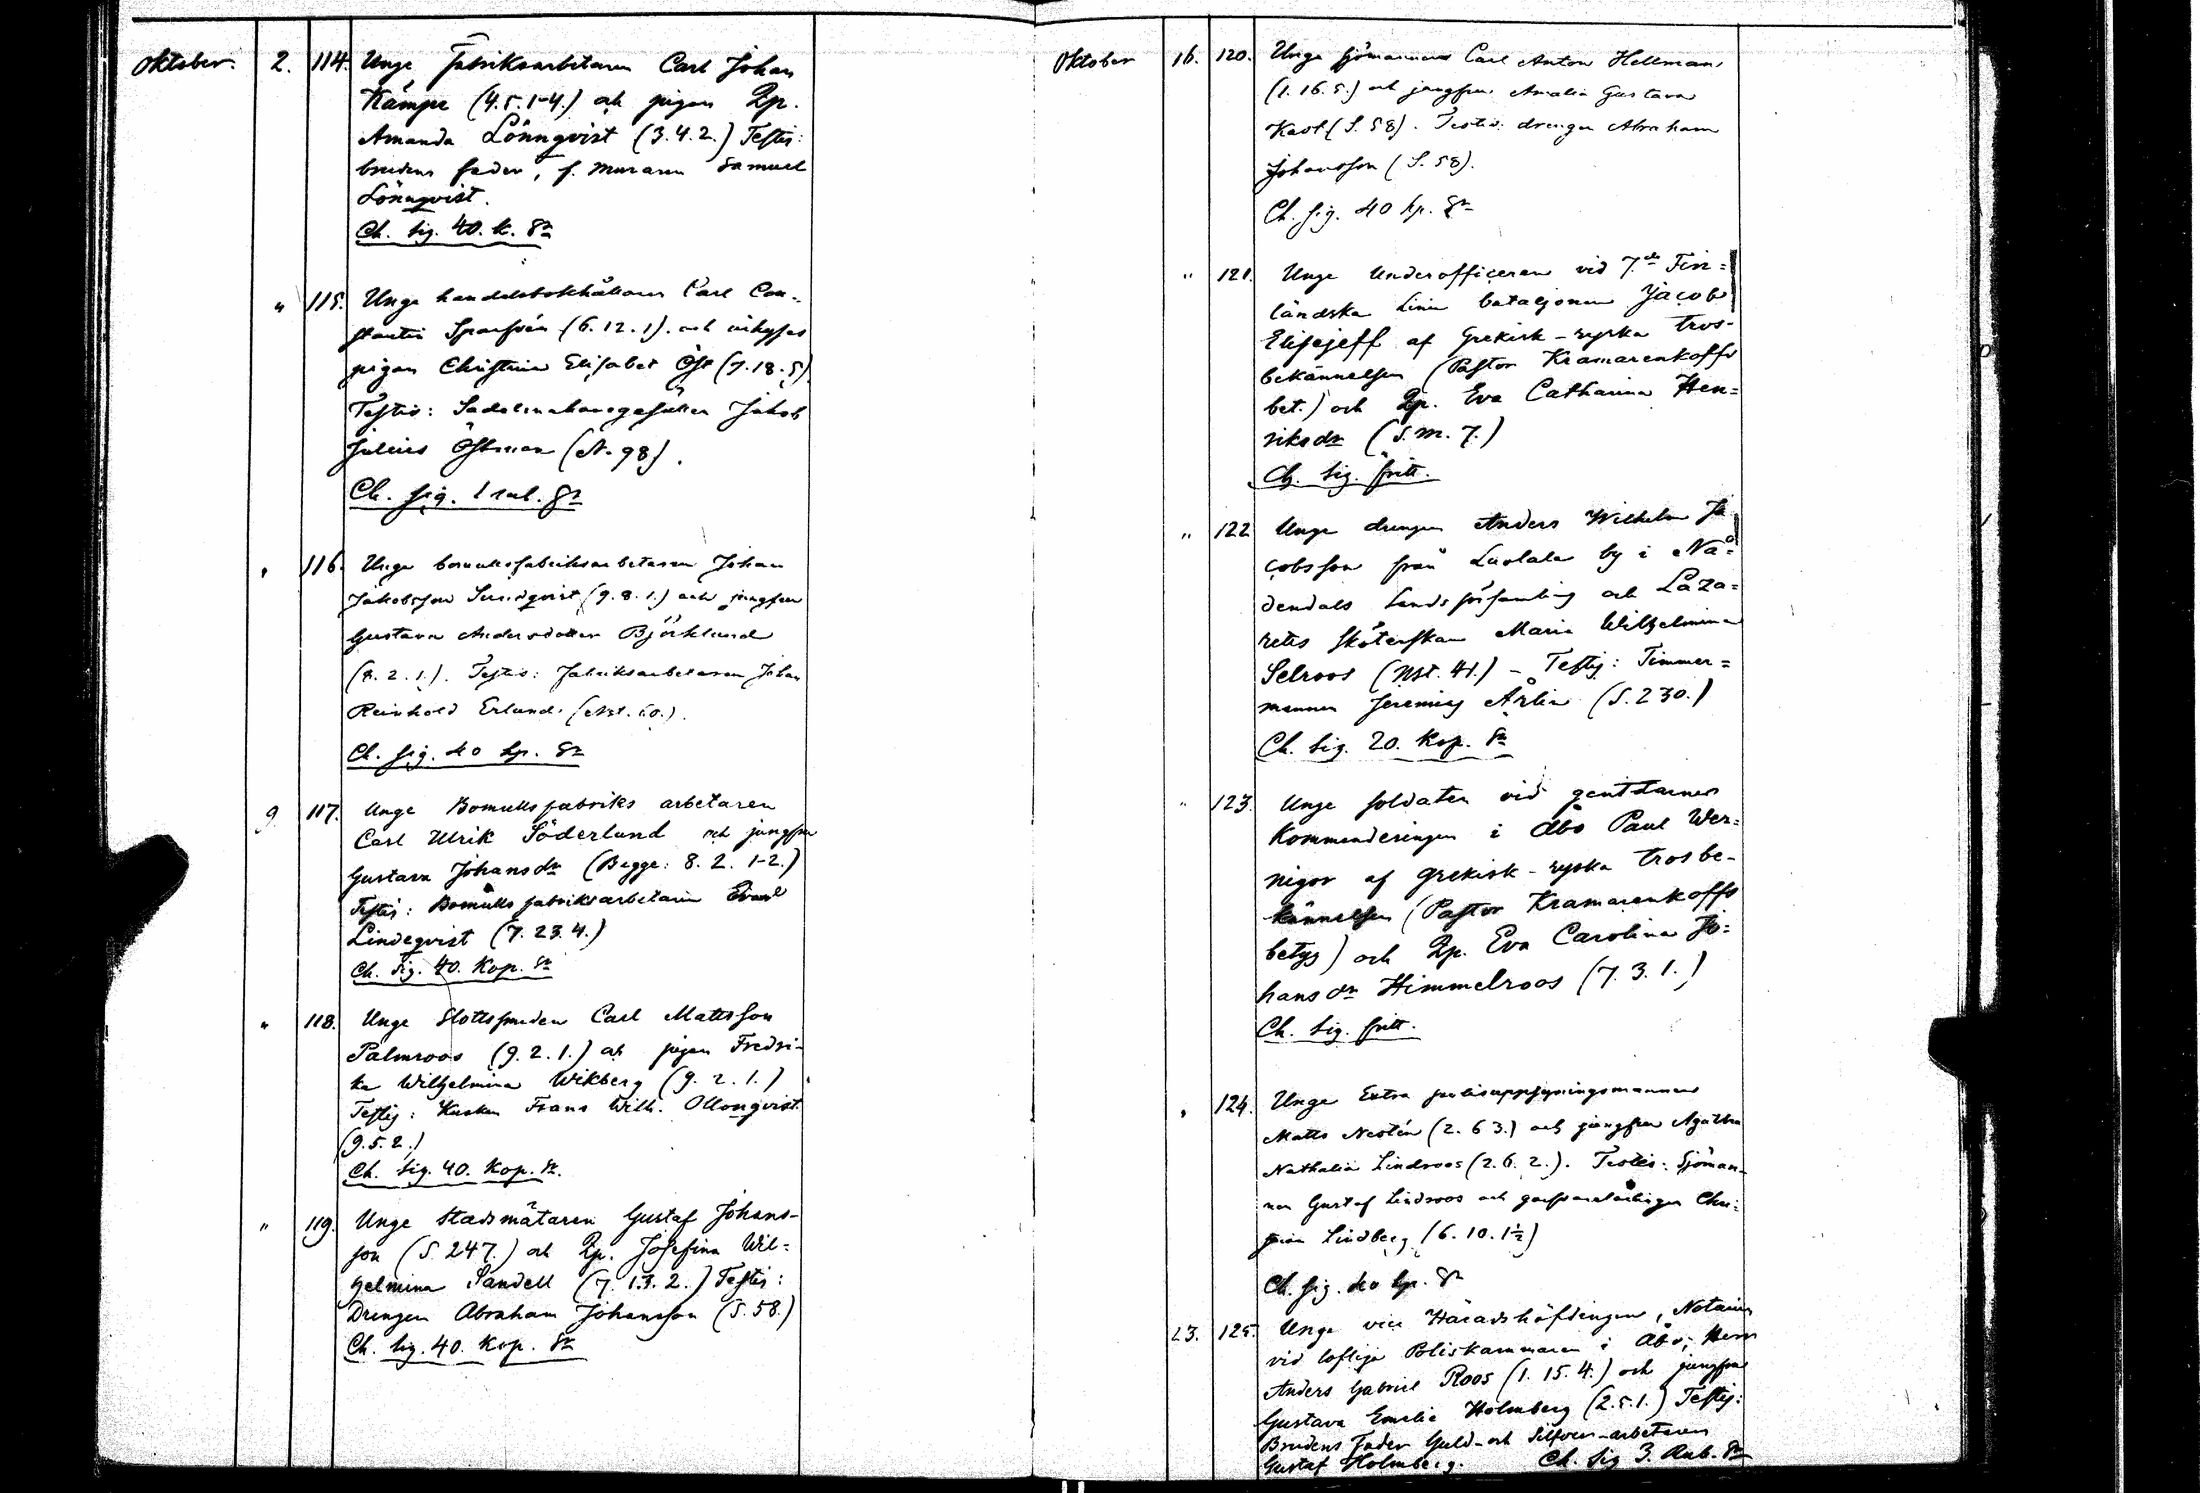 Oktober. 2. 114. Unge Fabriksarbetaren Carl Johan
Kämpe (4.5.1-4.) och pigan Qp.
Amanda Lönnqvist (3.4.2.) Testis:
brudens fader, f. muraren Samuel
Lönnqvist.
Ch. sig. 40. k. Sr
" 115. Unge handelsbokhållaren Carl Con-
stantin Sparfvén (6.12.1). och inhyses
pigan Christina Elisabet Öst (7.18.5)
Testis: Sadelmakaregesällen Jakob
Julius Östman (N. 98).
Ch. sig. 1 rul. Sr
" 116. Unge bomullsfabriksarbetaren Johan
Jakobsson Sundqvist (9.8.1.) och jungfrun
Gustava Andersdotter Björklund
(8.2.1.). Testis: Fabriksarbetaren Johan
Reinhold Erlund. (Nst. 60.).
Ch. sig. 40 kp. Sr
9 117. Unge Bomullsfabriks arbetaren
Carl Ulrik Söderlund och jungfru
Gustava Johansdr (Begge: 8.2.1-2.)
Testis: Bomullsfabriksarbetaren
Lindeqvist (7.23.4.)
Ch. sig. 40. Kop. Sr
" 118. Unge Carl Mattsson
Palmroos (9.2.1.) och pigan Fredri-
ka Wilhelmina Wikberg (9.2.1.)
Testis: Kusken Frans Wilh. Ollonqvist.
(9.5.2.)
Ch. sig. 40. Kop. Sr.
" 119. Unge Stadsmätaren Gustaf Johans-
son (S. 247.) och Qp. Josefina Wil=
helmina Sandell (7.13.2.) Testis:
Drengen Abraham Johansson (S. 58.)
Ch. sig. 40. Kop. Sr
Oktober 16. 120. Unge sjömannen Carl Anton Hellman
(1.16.5.) och jungfrun Amalia Gustava
(S. 58). Testis: drengen Abraham
Johansson (S. 58).
Ch. sig. 40 kp. Sr
" 121. Unge Underofficeren vid 7.de Fin=
ländska Linie bataljonen Jacob
Elisejeff af Grekisk-ryska tros-
bekännelsen (Pastor Kramarenkoffs
bet.) och Qp. Eva Catharina Hen=
riksdr (S.M. 7.)
Ch. sig. fritt.
" 122 Unge drengen Anders Wilhelm Ja
cobsson från Luolala by i Nå=
dendals Landsförsamling och Laza=
retts sköterskan Maria Wilhelmina
Selroos (Nst. 41.) - Testis: Timmer=
mannen Jeremias Arlin (S. 230.)
Ch. sig. 20. Kop. Sr
" 123. Unge soldaten vid gentdarmes
Kommenderingen i Åbo Paul Wer=
nigor af grekisk-ryska trosbe-
kännelsen (Pastor Kramarenkoffs
betyg) och Qp. Eva Carolina Jo=
hansdr Himmelroos (7.3.1.)
Ch. sig. fritt.
" 124. Unge Extra polisuppsyningsmannen
Matts Nestén (2.6 3.) och jungfrun Agatha
Nathalia Lindroos (2.6.2.). Testis: Sjöman-
nen Gustaf Lindroos och
Lindberg (6.10.1½)
Ch. sig. 40 kp. Sr
23. 125. Unge vice Häradshöfdingen, Notarien
vid loflige Poliskammaren i Åbo, Herr
Anders Gabriel Roos (1.15.4.) och jungfru
Gustava Emelie Holmberg (2.5.1.) Testis:
Brudens Fader Guld- och Silfver-arbetaren
Gustaf Holmberg. Ch. sig 3. Rub. Sr